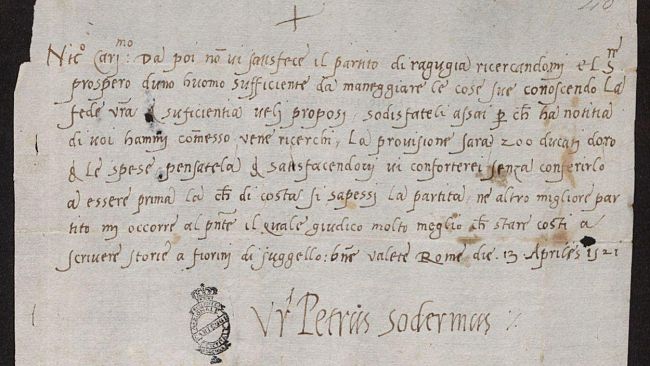 Nic.º Car.mo: Da poi nõ vi satisfece il partito di ragugia ricercandomi el S.re
prospero duno huomo sufficiente da maneggiare le cose sue conoscendo La
fede vr̃a & suficientia veli proposi, sodisfateli assai ꝑ ch̃ ha notitia
di voi hammi comesso, vene ricerchi, La provisione sara 200 ducati doro
& le spese, pensatela & satisfacendovi vi conforterei senza conferirlo
a essere prima La ch̃ di costa si sapessi La partita, ne altro migliore par
tito mi occorre al pñte il quale giudico molto meglio ch̃ stare costi a
scrivere storie a fiorini di suggello: bñe valete Rome die. 13 Aprilis 1521
Vr̃ Petrus Soderinus